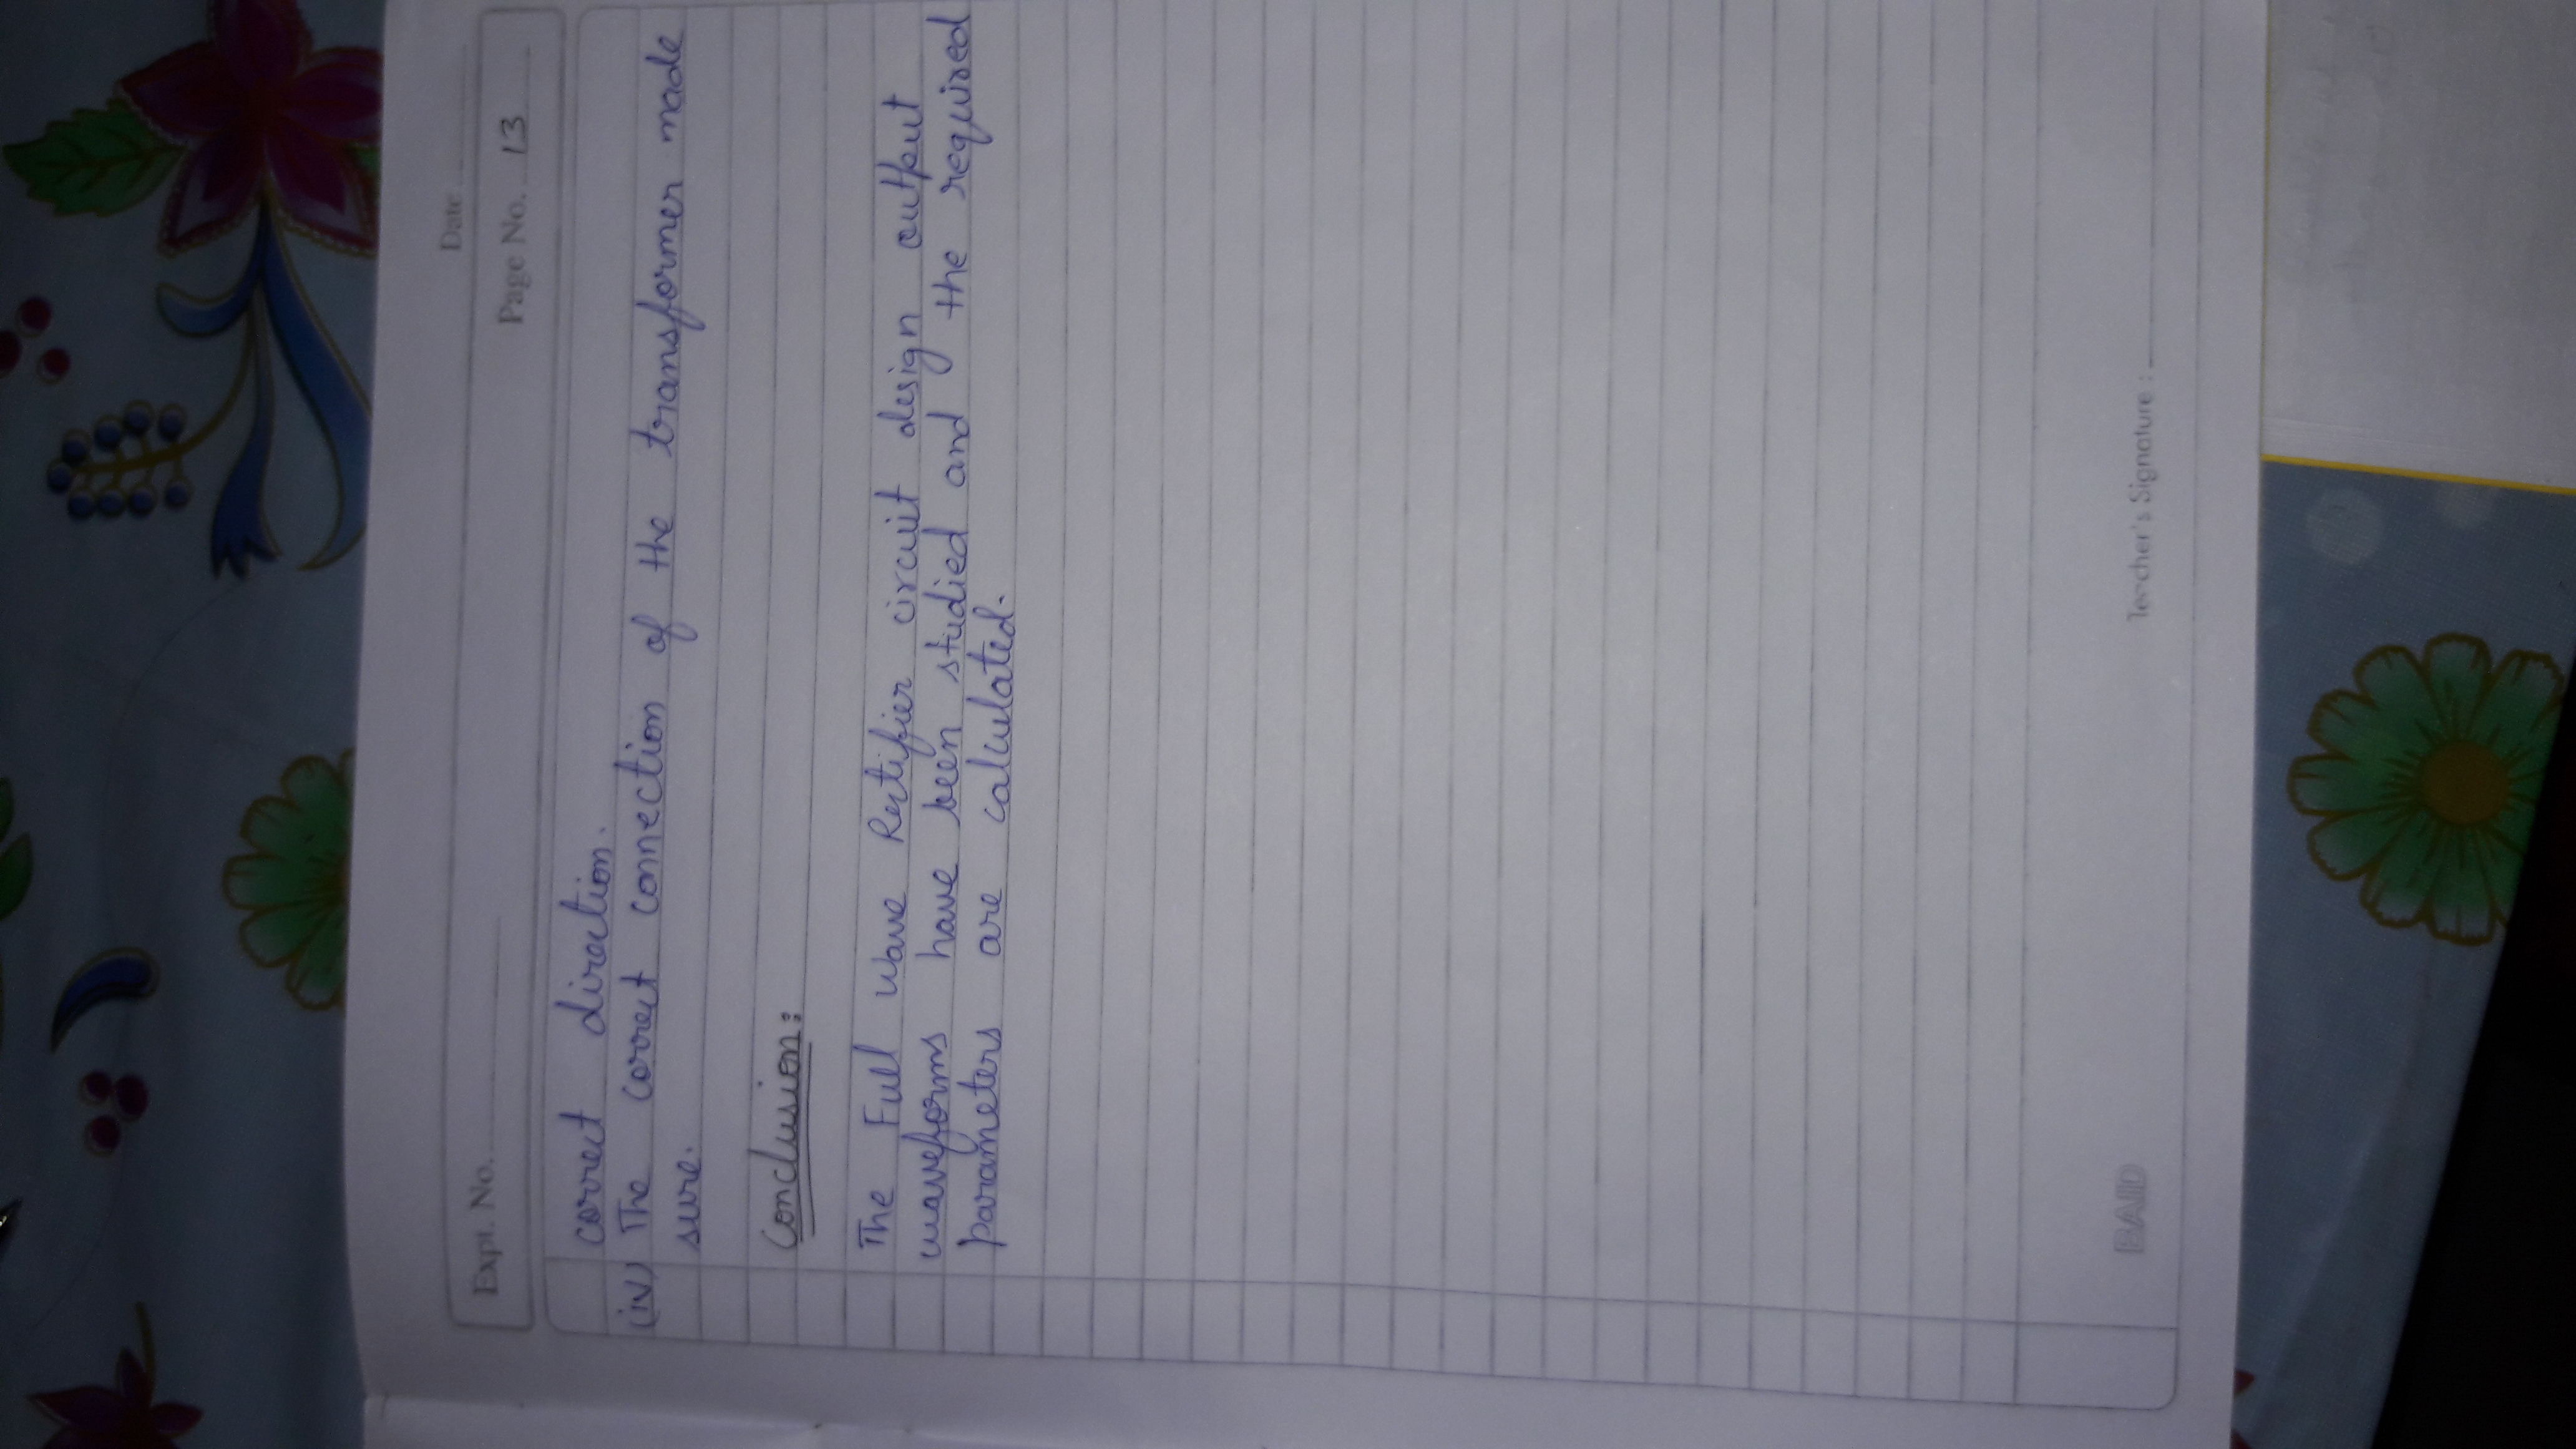 Date
Expt. No.
Page No. 13
correct direction.
(iv) The correct connection of the transformer made
sure.
Conclusion:
The Full Wave Rectifier circuit design output
waveforms have been studied and the required
parameters are calculated.
BAID
Teacher's Signature :